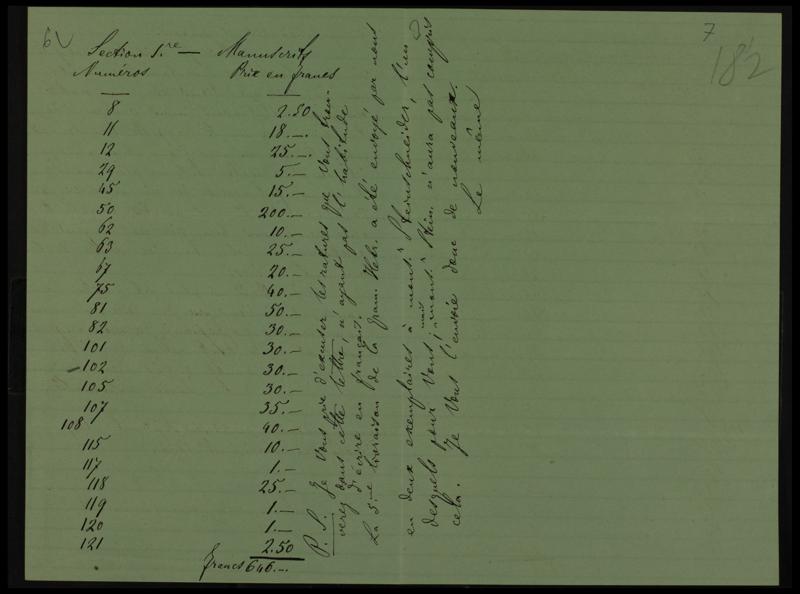 6v
7
182
Section 5.re — Manuscrits
Numéros Prix en francs
8 2.50
11 18.—
12 25.—
29 5.—
45 15.—
50 200.—
62 10.—
63 25.—
67 20.—
75 40.—
81 50.—
82 30.—
101 30.—
102 30.—
105 30.—
107 35.—
108 40.—
115 10.—
117 1.—
118 25.—
119 1.—
120 1.—
121 2.50
francs 646.—
P. S. Je Vous prie d'excuser les ratures que Vous trou-
verez dans cette lettre, n'ayant pas l'habitude
d'écrire en français.
La 5.e livraison de la gram. Hebr. a été envoyé par nous
en deux exemplaires à mons.r Steinschneider, l'un
desquels pour Vous; mais mons.r Stein. n'aura pas compris
cela. Je Vous l'envoie donc de nouveau.
Le même